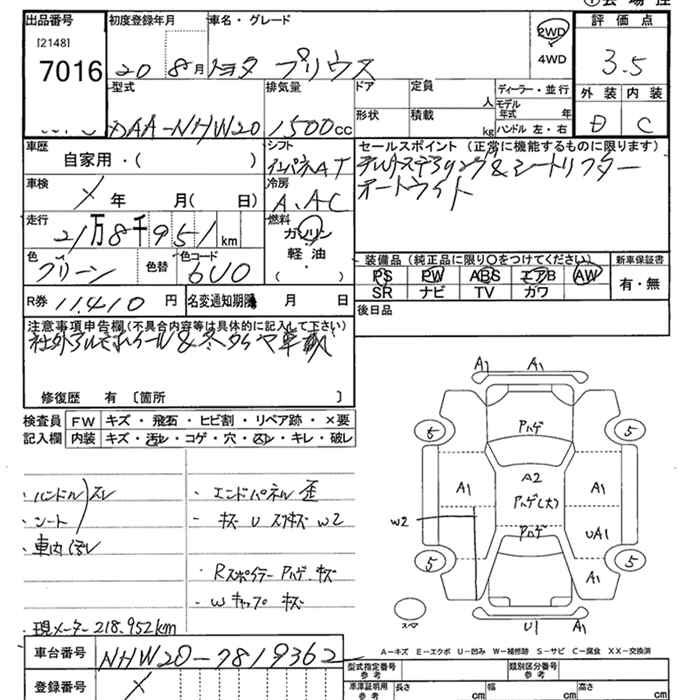 出品番号
[2148]
7016
初度登録年月
20 8月
車名・グレード
トヨタ プリウス
2WD
4WD
評価点
3.5
外装 内装
D C
型式
DAA-NHW20
排気量
1500cc
ドア
定員
人
形状
積載
kg
ディーラー・並行
モデル
年式 年
ハンドル 左・右
車歴
自家用・( )
シフト
インパネAT
セールスポイント (正常に機能するものに限ります)
テレ&シートリフター
オートライト
車検
× 年 月( 日)
冷房
A.AC
走行
21万8千951km
燃料
ガソリン
軽・油
・
( )
色
グリーン
色替
色コード
6U0
装備品 (純正品に限り○をつけてください)
PS PW ABS エアB AW
SR ナビ TV カワ
新車保証書
有・無
R券 11,410 円
名変通知期限 月 日
後日品
注意事項申告欄(不具合内容等は具体的に記入して下さい)
社外アルミホイール&冬タイヤ車載
修復歴 有 〔箇所 〕
検査員
記入欄
FW キズ・飛石・ヒビ割・リペア跡・×要
内装 キズ・汚レ・コゲ・穴・スレ・キレ・破レ
・ハンドル スレ
・シート
・車内汚レ
・エンドパネル 歪
・キズ U W2
・Rスポイラー Pハゲ キズ
・Wキャップ キズ
・現メーター218.952km
A1 A1
Pハゲ
5 5
A2
A1 Pハゲ(大) A1
W2 Pハゲ UA1
5 5
A1
スペア
U1 A1
A-キズ E-エクボ U-凹み W-補修跡 S-サビ C-腐食 XX-交換済
車台番号
NHW20-7819362
登録番号
×
型式指定番号
参考
類別区分番号
参考
車庫証明用
参考
長さ cm 幅 cm 高さ cm